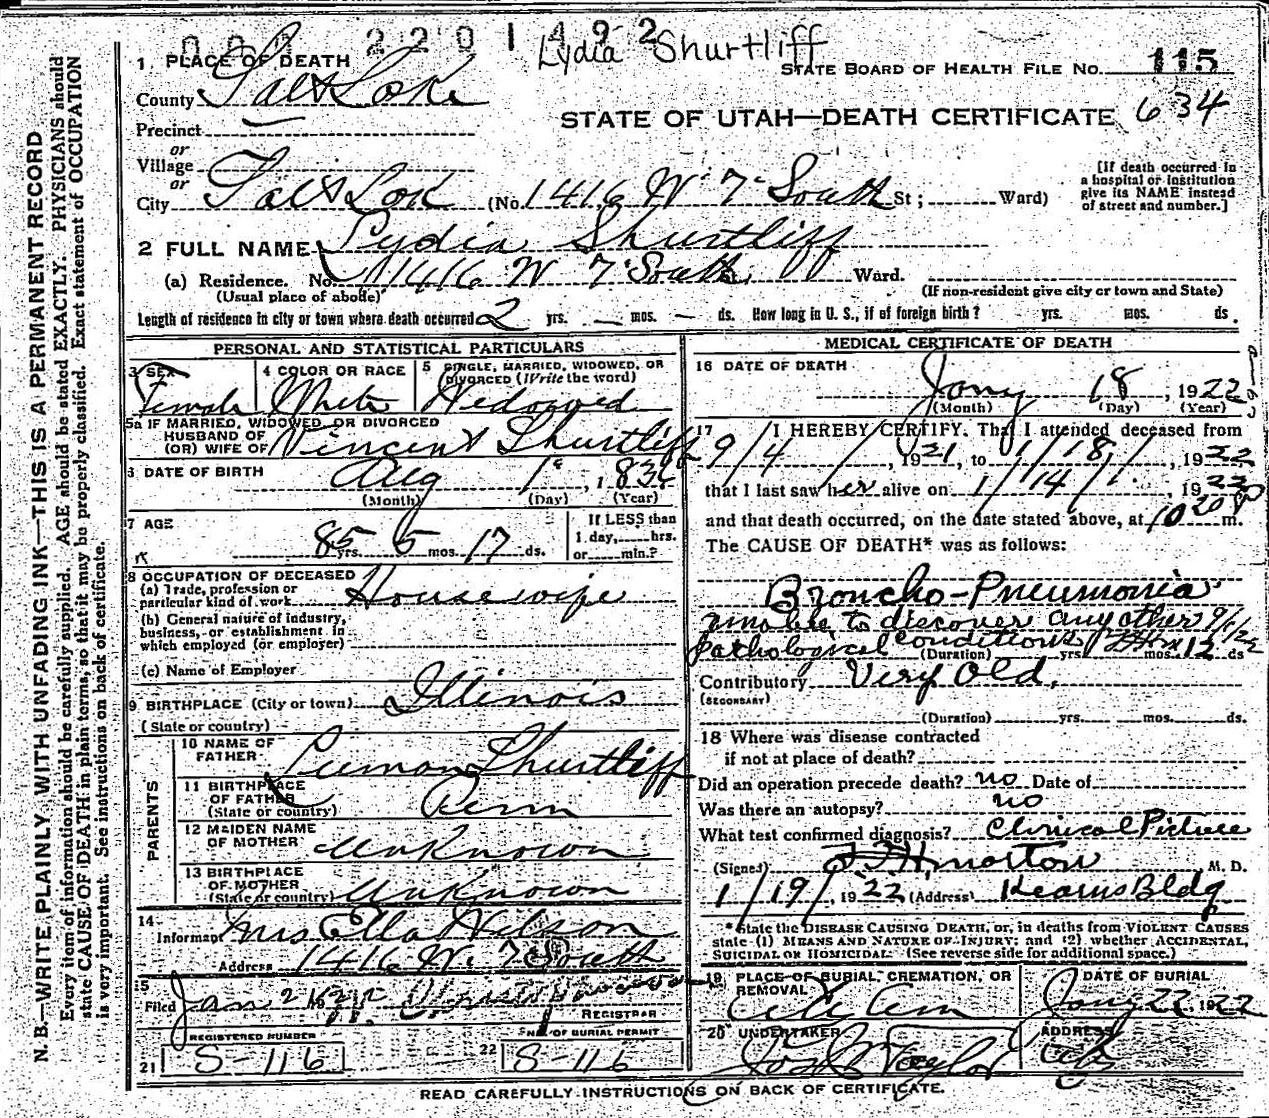 2201492
Lydia Shurtliff
STATE BOARD OF HEALTH FILE NO. 115
634
1 PLACE OF DEATH
County Salt Lake
STATE OF UTAH—DEATH CERTIFICATE
Precinct
or
Village
or
City Salt Lake (No. 1416 W 7 South St; Ward)
[If death occurred in a hospital or institution give its NAME instead of street and number.]
2 FULL NAME Lydia Shurtliff
(a) Residence. No. 1416 W 7 South Ward.
(Usual place of abode) (If non-resident give city or town and State)
Length of residence in city or town where death occurred 2 yrs. — mos. — ds. How long in U. S., if of foreign birth? yrs. mos. ds.
PERSONAL AND STATISTICAL PARTICULARS
3 SEX Female
4 COLOR OR RACE White
5 SINGLE, MARRIED, WIDOWED, OR DIVORCED (Write the word) Widowed
5a IF MARRIED, WIDOWED OR DIVORCED
HUSBAND OF
(OR) WIFE OF Vincent Shurtliff
6 DATE OF BIRTH Aug 1 1836
(Month) (Day) (Year)
7 AGE 85 yrs. 5 mos. 17 ds.
If LESS than 1 day, hrs. or min.?
8 OCCUPATION OF DECEASED
(a) Trade, profession or particular kind of work Housewife
(b) General nature of industry, business, or establishment in which employed (or employer)
(c) Name of Employer
9 BIRTHPLACE (City or town) Illinois
(State or country)
PARENTS
10 NAME OF FATHER Luman Shurtliff
11 BIRTHPLACE OF FATHER (State or country) Penn
12 MAIDEN NAME OF MOTHER Unknown
13 BIRTHPLACE OF MOTHER (State or country) Unknown
14
Informant Mrs Ella Nelson
Address 1416 W. 7 South
15
Filed Jan
REGISTRAR
REGISTERED NUMBER
21 S-116
NO. OF BURIAL PERMIT
22 S-116
MEDICAL CERTIFICATE OF DEATH
16 DATE OF DEATH Jany 18, 1922
(Month) (Day) (Year)
17 I HEREBY CERTIFY, That I attended deceased from
9/4/, 1921, to 1/18/, 1922
that I last saw her alive on 1/14/, 1922
and that death occurred, on the date stated above, at m.
The CAUSE OF DEATH* was as follows:
Broncho-Pneumonia
unable to discover any other
pathological conditions
(Duration) yrs. mos. 12 ds
Contributory Very Old.
(SECONDARY)
(Duration) yrs. mos. ds.
18 Where was disease contracted
if not at place of death?
Did an operation precede death? no Date of
Was there an autopsy? no
What test confirmed diagnosis? Clinical Picture
(Signed) Morton M. D.
1/19/, 1922 (Address) Kearns Bldg
*State the DISEASE CAUSING DEATH, or, in deaths from VIOLENT CAUSES
state (1) MEANS AND NATURE OF INJURY; and (2) whether ACCIDENTAL,
SUICIDAL OR HOMICIDAL. (See reverse side for additional space.)
19 PLACE OF BURIAL, CREMATION, OR REMOVAL City Cem
DATE OF BURIAL Jany 22, 1922
20 UNDERTAKER Taylor
ADDRESS City
READ CAREFULLY INSTRUCTIONS ON BACK OF CERTIFICATE.
N. B.—WRITE PLAINLY, WITH UNFADING INK—THIS IS A PERMANENT RECORD
Every item of information should be carefully supplied. AGE should be stated EXACTLY. PHYSICIANS should
state CAUSE OF DEATH in plain terms, so that it may be properly classified. Exact statement of OCCUPATION
is very important. See instructions on back of certificate.